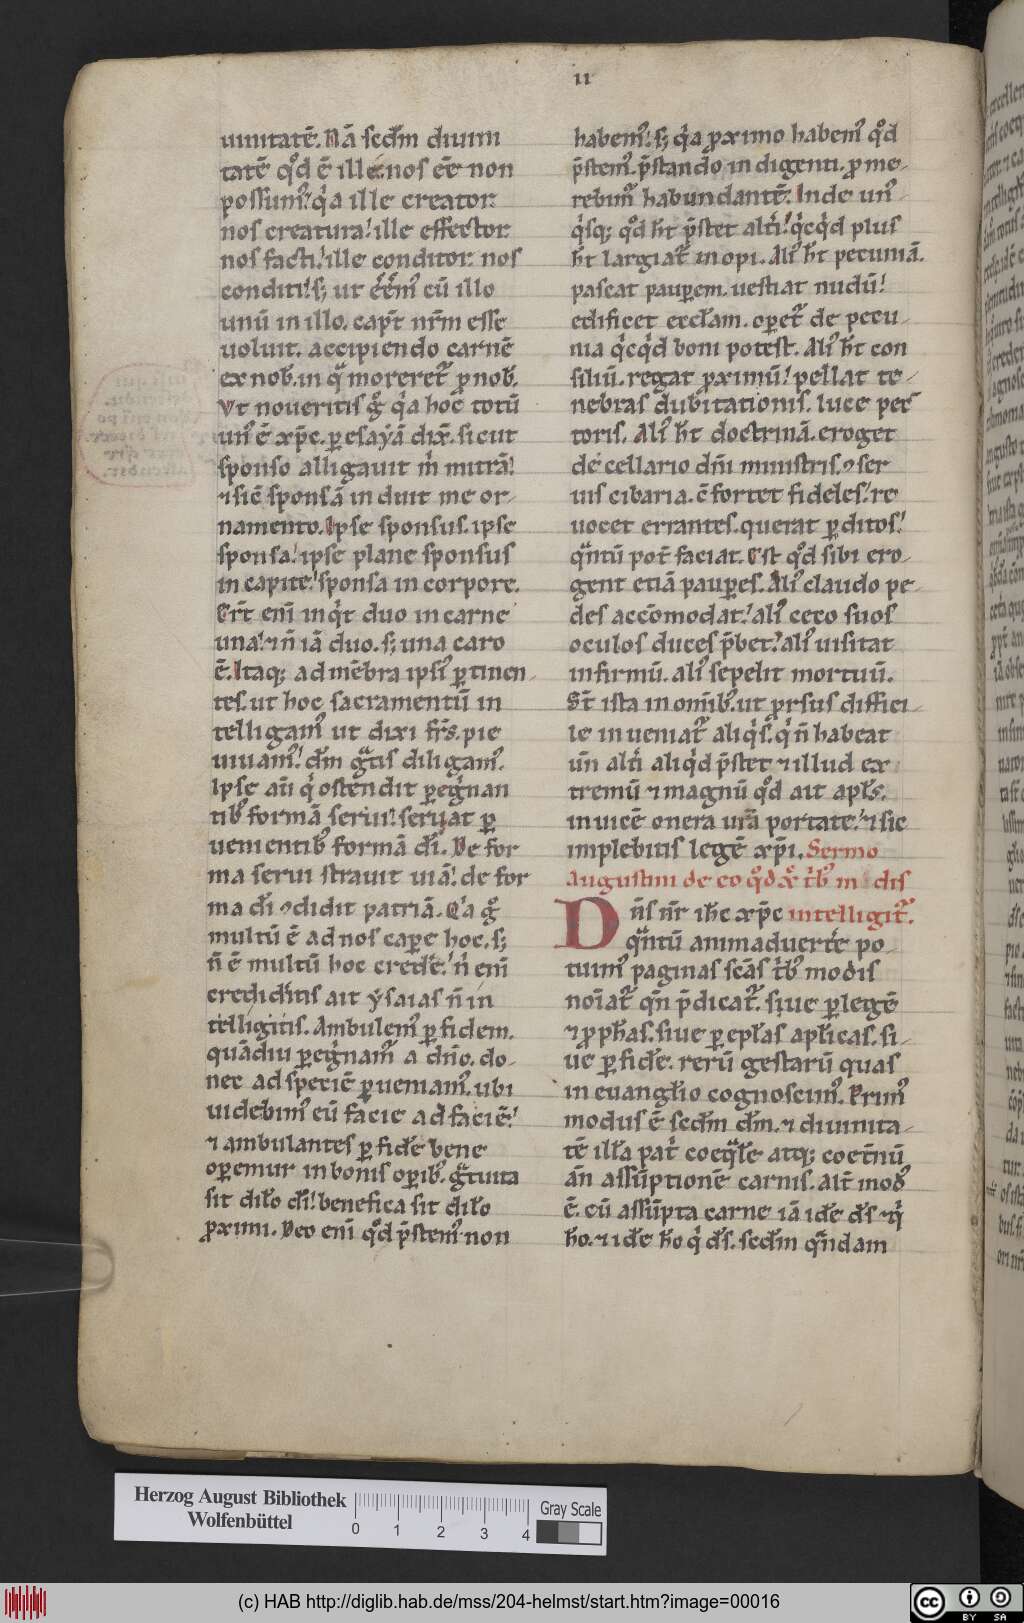 II
uinitatē. Nā scđm diuini
tatē qđ ē ille: nos eē non
possumꝰ. q̇a ille creator:
nos creatura! ille effector
nos facti! ille conditor: nos
conditi! sꝫ ut eēmꝰ cū illo
unū in illo. capꝉ nr̄m esse
uoluit. accipiendo carnē
ex nob̄. in qᷓ moreretᷣ ꝓ nob̄.
Vt noueritis gͦ q̇a hoc totū
unꝰ ē xp̄c. ꝑ esayā dix̄. sicut
sponso alligauit m̊ mitrā!
⁊ sic̄ sponsā induit me or-
namento. Ipse sponsus. ipse
sponsa! ipse plane sponsus
in capite! sponsa in corpore.
Er̄t eni̅ inq̇t duo in carne
una! ⁊ n̄ iā duo. sꝫ una caro
ē. Itaqꝫ ad mēbra ipsiꝰ ꝑtinen-
tes. ut hoc sacramentū in
telligamꝰ ut dixi fr̄s. pie
uiuamꝰ! dm̄ gᷓtis diligamꝰ.
Ipse aū q̇ ostendit ꝑegͥnan
tibꝰ formā serui! seruat ꝑ
uenientibꝰ formā dī. De for
ma serui strauit uiā! de for
ma dī ↄdidit patriā. Q̇a gͦ
multū ē ad nos caꝑe hoc. sꝫ
n̄ ē multū hoc credere! n̄ enī
crediderītis ait ysaias n̄ in
telligitis. Ambulemꝰ ꝑ fidem.
quādiu ꝑegͥnamᷣ a dn̄o. do-
nec ad speciē ꝑueniamꝰ. ubi
uidebimꝰ eū facie ad faciē!
⁊ ambulantes ꝑ fidē bene
oꝑemur in bonis oꝑibꝰ. gᷓtuita
sit dilo dī! benefica sit dilo
ꝓximi. Deo enī qđ p̄stemꝰ non
habemꝰ! sꝫ q̇a ꝓximo habemꝰ qđ
p̄stemꝰ. p̄stando indigenti. ꝓme-
rebimᷣ habundantē. Inde unꝰ
q̇sqꝫ qđ h̄t p̄stet alti̇! q̇cq̇d plus
h̄t largiatᷣ inopi. Aliꝰ h̄t pecuniā.
pascat pauꝑem. uestiat nudū!
edificet eccl̄am. oꝑetᷣ de pecu-
nia q̇cq̇d boni potest. Aliꝰ h̄t con
siliū. regat ꝓximū! pellat te-
nebras dubitationis. luce pec
toris. Aliꝰ h̄t doctrinā. eroget
de cellario dn̄i ministris. ↄser
uis cibaria. ↄ̄fortet fideles! re
uocet errantes. querat ꝑditos!
qᷓntū pot̄ faciat. Est qđ sibi ero-
gent etiā pauꝑes. Aliꝰ claudo pe-
des accōmodat! aliꝰ ceco suos
oculos duces p̄bet! aliꝰ uisitat
infirmū. aliꝰ sepelit mortuū.
St̄ ista in omībꝰ. ut ꝓrsus diffici-
le inueniatᷣ aliq̇s. q̇ n̄ habeat
un̄ alti̇ aliq̇d p̄stet ⁊ illud ex
tremū ⁊ magnū qđ ait apl̄s.
inuicē onera ur̄a portate! ⁊ sic
implebitis legē xp̄i. Sermo
Augustini de eo qđ xp̄c t̊bꝰ modis
Dn̄s nr̄ ih̄c xp̄c intelligitᷣ.
qᷓntū animaduertē po
tuimꝰ paginas sc̄as t̊bꝰ modis
noīatᷣ qn̄ p̄dicatᷣ. siue ꝑ legē
⁊ ꝓph̄as. siue ꝑ epl̄as apl̄icas. si-
ue ꝑ fidē. rerū gestarū quas
in euanglio cognoscimꝰ. Primꝰ
modus ē scđm dm̄. ⁊ diuinita-
tē illā patͥ coeqᷓlē atqꝫ coet̄nū
an̄ assūptionē carnis. Alt̄ modꝰ
ē. cū assūpta carne iā idē ds̄ ⁊ q̇
h̄o. ⁊ idē h̄o q̇ ds̄. scđm qᷓndam
Herzog August Bibliothek
Wolfenbüttel
0 1 2 3 4
Gray Scale
(c) HAB http://diglib.hab.de/mss/204-helmst/start.htm?image=00016
cc BY SA